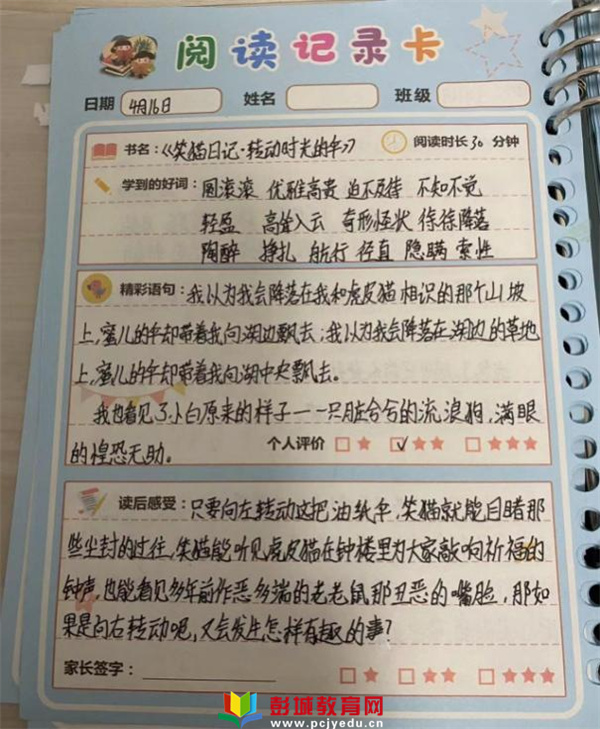 阅读记录卡
日期 4月16日 姓名 班级
书名：《笑猫日记·转动时光的伞》 阅读时长 30 分钟
学到的好词：圆滚滚 优雅高贵 迫不及待 不知不觉
轻盈 高耸入云 奇形怪状 徐徐降落
陶醉 挣扎 航行 径直 隐瞒 索性
精彩语句：我以为我会降落在我和虎皮猫相识的那个山坡
上，蜜儿的伞却带着我向湖边飘去；我以为我会降落在湖边的草地
上，蜜儿的伞却带着我向湖中央飘去。
我也看见了小白原来的样子——一只脏兮兮的流浪狗，满眼
的惶恐无助。 个人评价
读后感受：只要向左转动这把油纸伞，笑猫就能目睹那
些尘封的过往，笑猫能听见虎皮猫在钟楼里为大家敲响祈福的
钟声，也能看见多年前作恶多端的老老鼠那丑恶的嘴脸，那如
果是向右转动呢，又会发生怎样有趣的事？
家长签字：
彭城教育网
www.pcjyedu.cn